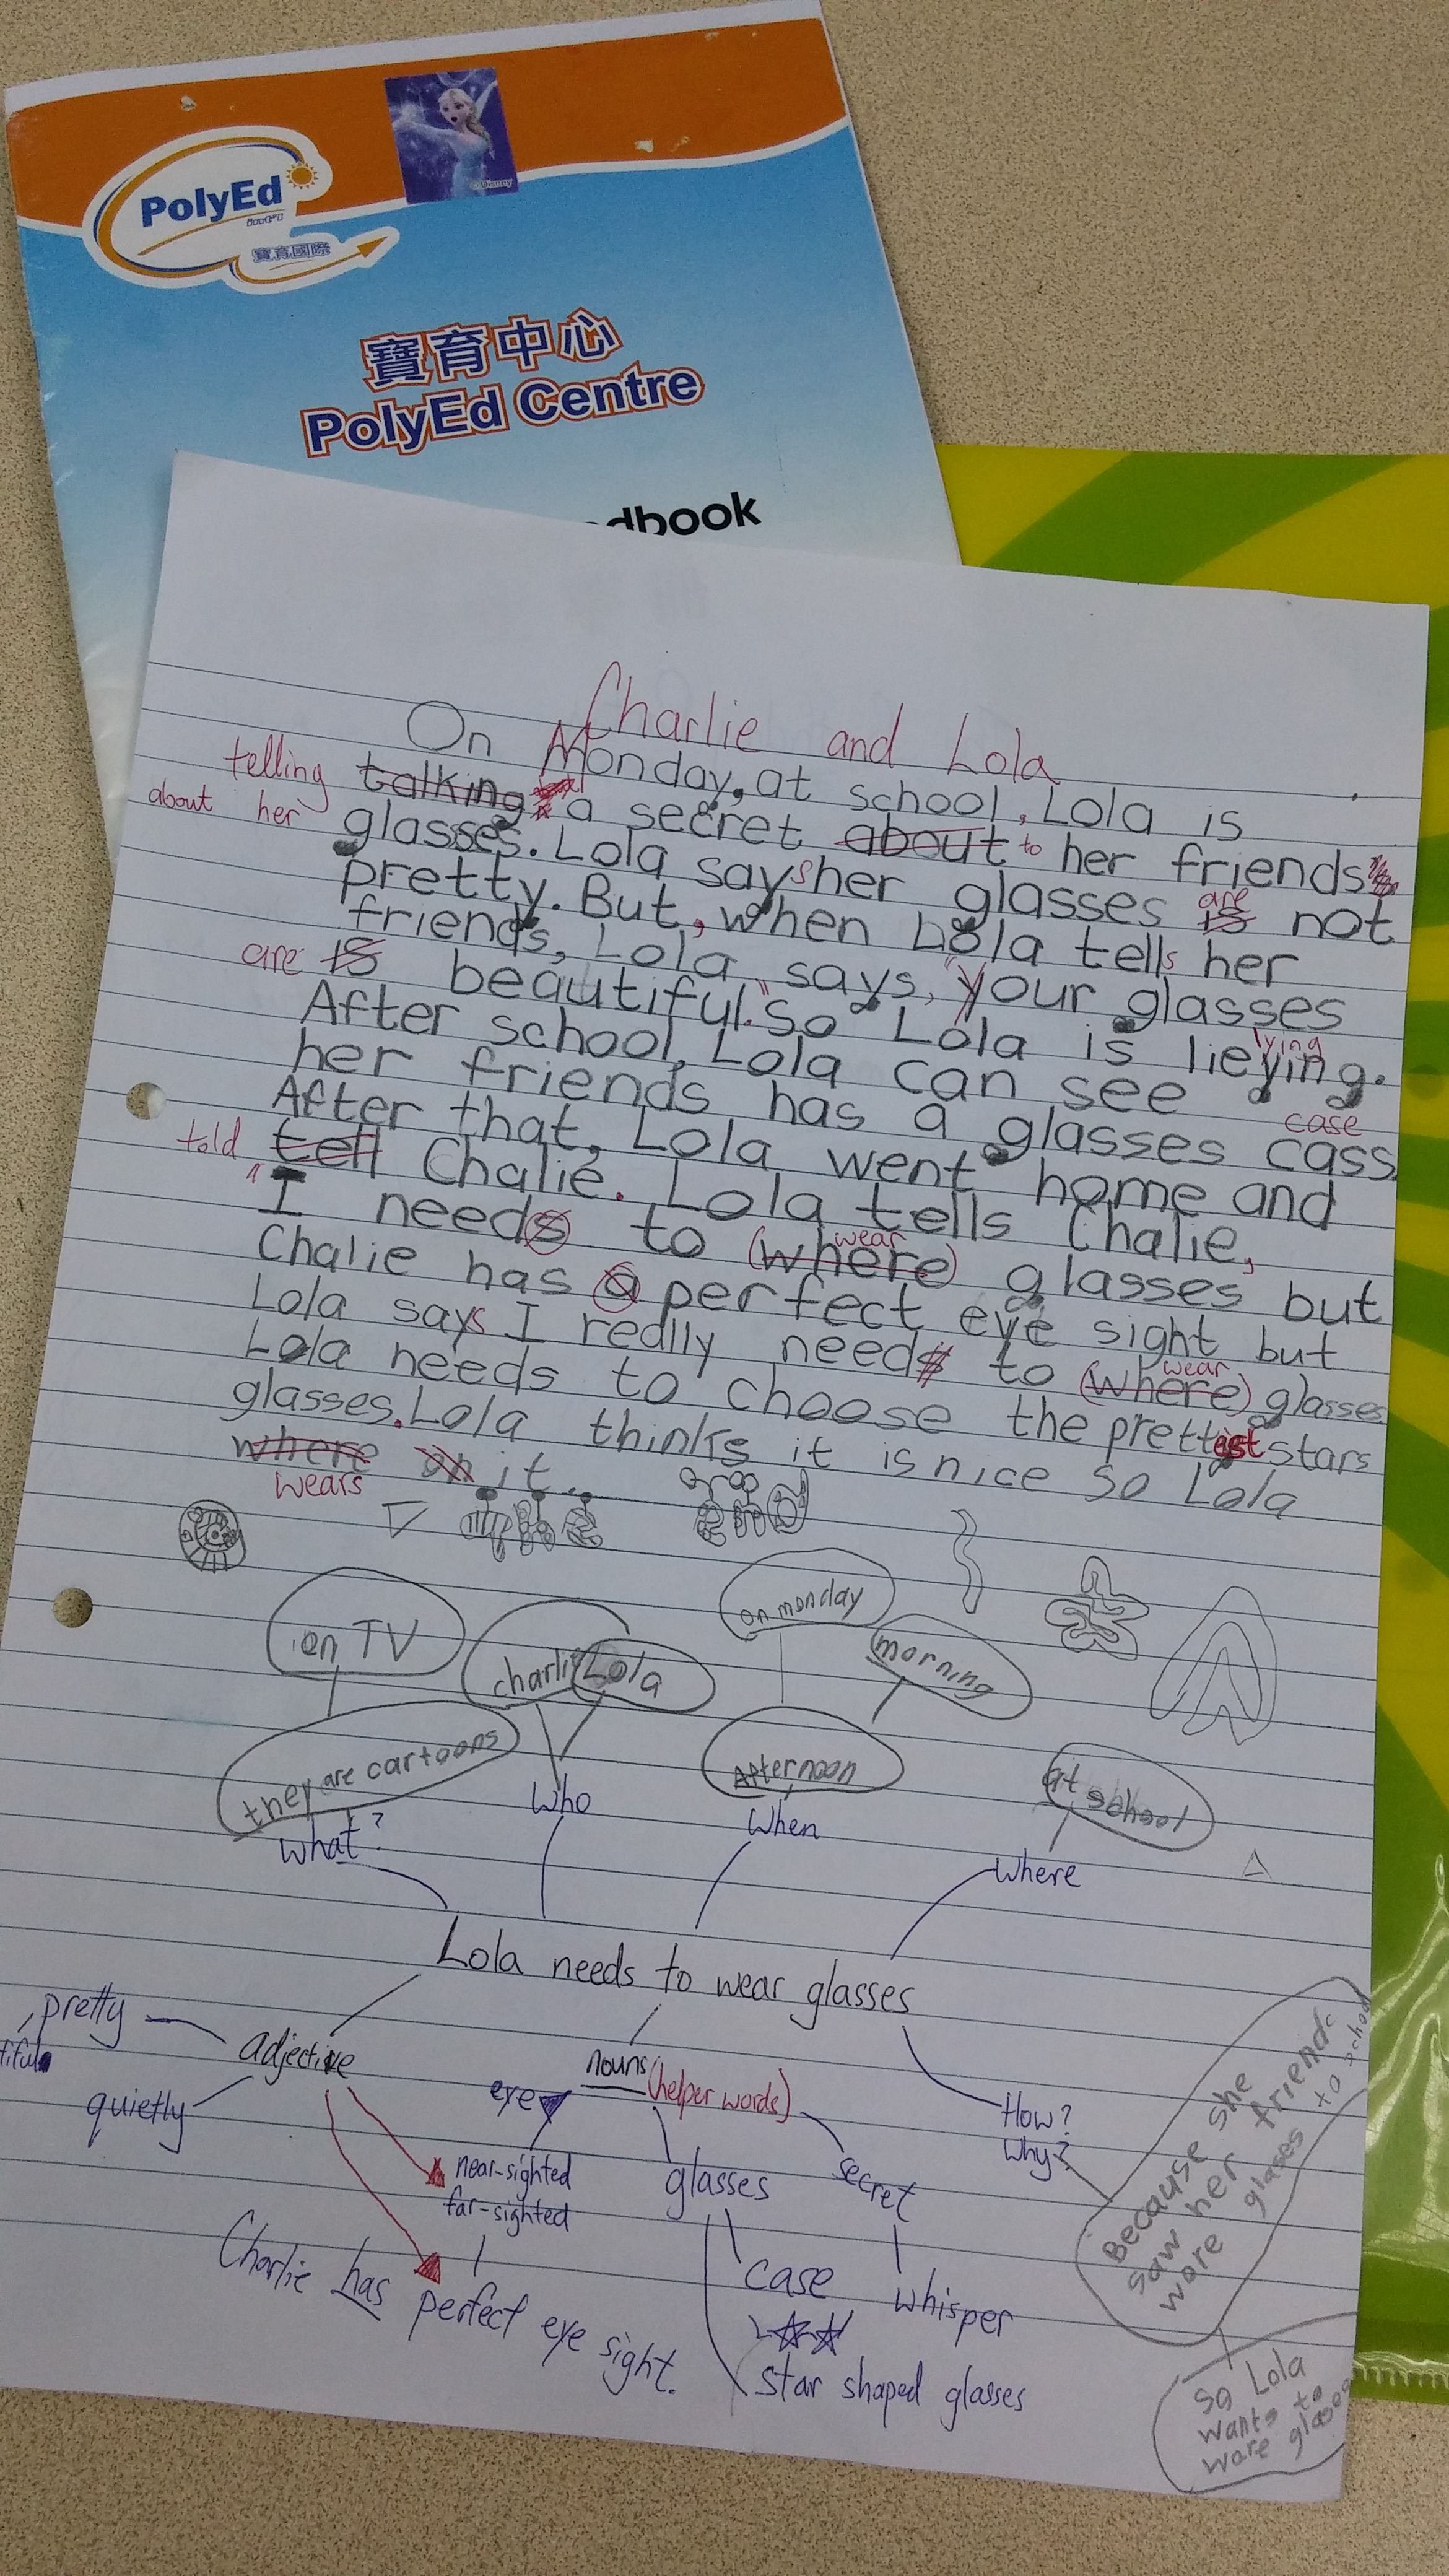 PolyEd
Int'l
寶育國際
© Disney
寶育中心
PolyEd Centre
dbook
Charlie and Lola
On Monday, at school, Lola is
telling talking a secret about to her friends
about her glasses. Lola says her glasses are is not
pretty. But, when Lola tells her
friends, Lola says, "your glasses
are is beautiful." So Lola is lieying. lying
After school, Lola can see
her friends has a glasses cass case
After that, Lola went home and
told tell Chalie. Lola tells Chalie,
I needs to (where) wear glasses but
Chalie has a perfect eye sight but
Lola says I really needs to (where) wear glasses
Lola needs to choose the prettiest stars
glasses. Lola thinks it is nice so Lola
where on it..
wears
The end
on TV
charlie Lola
on monday
morning
they are cartoons
Afternoon
at school
what?
Who
When
Where
Lola needs to wear glasses
pretty
tiful
quietly
adjective
nouns (helper words)
eye
near-sighted
far-sighted
glasses
secret
How?
Why?
Because she
saw her friends
wore glasses to school
Charlie has perfect eye sight.
case
whisper
star shaped glasses
So Lola
wants to
ware glasses